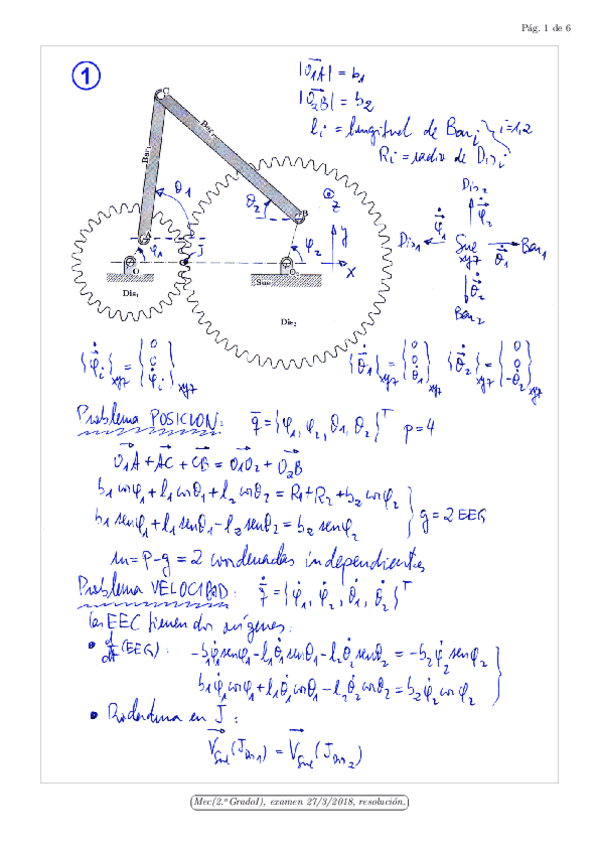 Pág. 1 de 6
1
|O₁A| = b₁
|O₂B| = b₂
lᵢ = longitud de Barᵢ } i=1,2
Rᵢ = radio de Disᵢ
C
Bar₁
Bar₂
θ₁
θ₂
z
B
A
φ₁
J
φ₂
y
x
O₁
O₂
Sue
Dis₁
Dis₂
Dis₂
φ̇₂
φ̇₁
Dis₁ Sue Bar₁
xyz θ̇₁
θ̇₂
Bar₂
{φ̇ᵢ}xyz = {0 0 φ̇ᵢ}xyz {θ̇₁}xyz = {0 0 θ̇₁}xyz {θ̇₂}xyz = {0 0 -θ̇₂}xyz
Problema POSICION: q̄ = {φ₁, φ₂, θ₁, θ₂}ᵀ p=4
O₁A + AC + CB = O₁O₂ + O₂B
b₁ cosφ₁ + l₁ cosθ₁ + l₂ cosθ₂ = R₁+R₂ + b₂ cosφ₂
b₁ senφ₁ + l₁ senθ₁ - l₂ senθ₂ = b₂ senφ₂ } g = 2 EEG
m = p - g = 2 coordenadas independientes
Problema VELOCIDAD: q̇ = {φ̇₁, φ̇₂, θ̇₁, θ̇₂}ᵀ
Las EEC tienen dos orígenes:
• d/dt (EEG): -b₁φ̇₁senφ₁ - l₁θ̇₁senθ₁ - l₂θ̇₂senθ₂ = -b₂φ̇₂senφ₂
b₁φ̇₁cosφ₁ + l₁θ̇₁cosθ₁ - l₂θ̇₂cosθ₂ = b₂φ̇₂cosφ₂ }
• Rodadura en J:
V_Sue(J_Dis₁) = V_Sue(J_Dis₂)
Mec(2.ºGradoI), examen 27/3/2018, resolución.